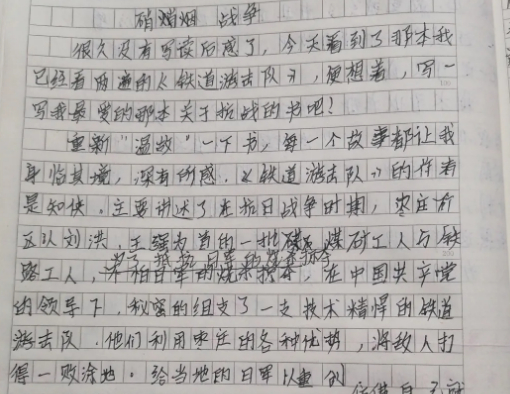 硝烟 战争
很久没有写读后感了，今天看到了那本我
已经看两遍的《铁道游击队》，便想着，写一
写我最爱的那本关于抗战的书吧！
重新“温故”一下书，每一个故事都让我
身临其境，深有所感。《铁道游击队》的作者
是知侠。主要讲述了在抗日战争时期，枣庄
区队刘洪，王强为首的一批煤矿工人与铁
路工人，在中国共产党
的领导下，秘密的组支了一支技术精悍的铁道
游击队。他们利用枣庄的各种优势，将敌人打
得一败涂地。给当地的日军以重创